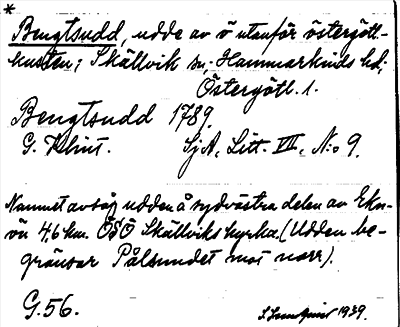 *
Bengtsudd, udde av ö utanför östergöt-
kusten; Skällvik sn; Hammarkinds hd;
Östergötl. l.
Bengtsudd 1789.
G. Klint. SjA, Litt. VII, N:o 9.
Namnet avsåg udden å sydvästra delen av Ekn-
ön 4,6 km. ÖSÖ Skällviks kyrka. (Udden be-
gränsar Pålsundet mot norr).
G.56.
1939.